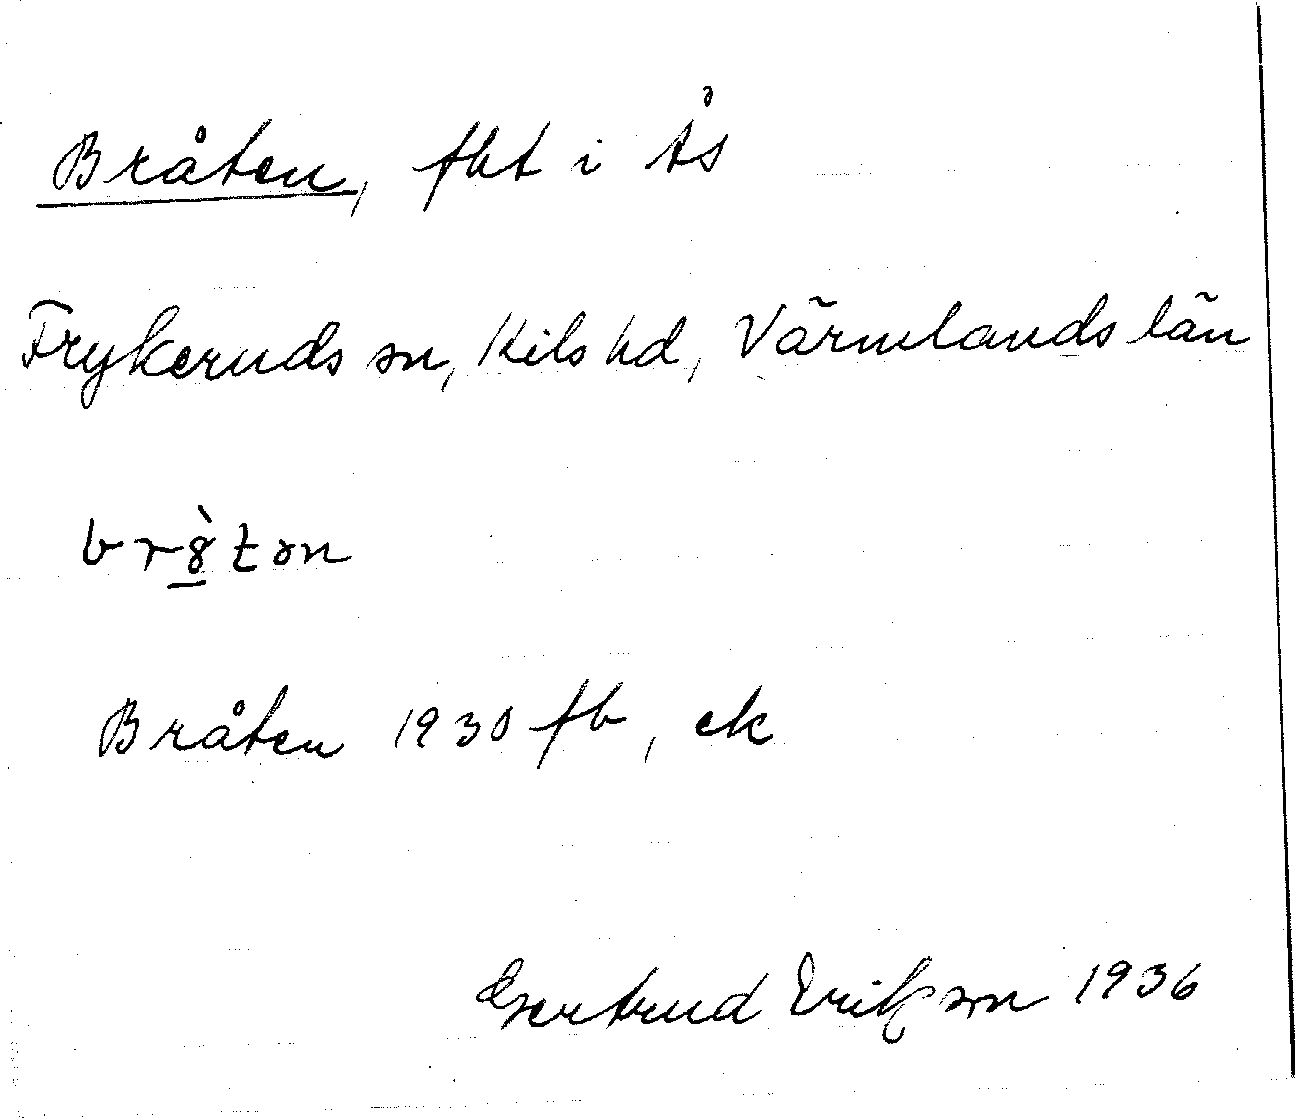 Bråten, fbt i Ås
Frykeruds sn, Kils hd, Värmlands län
br8̲̀tən
Bråten 1930 fb, ek
Gertrud Erikson 1936